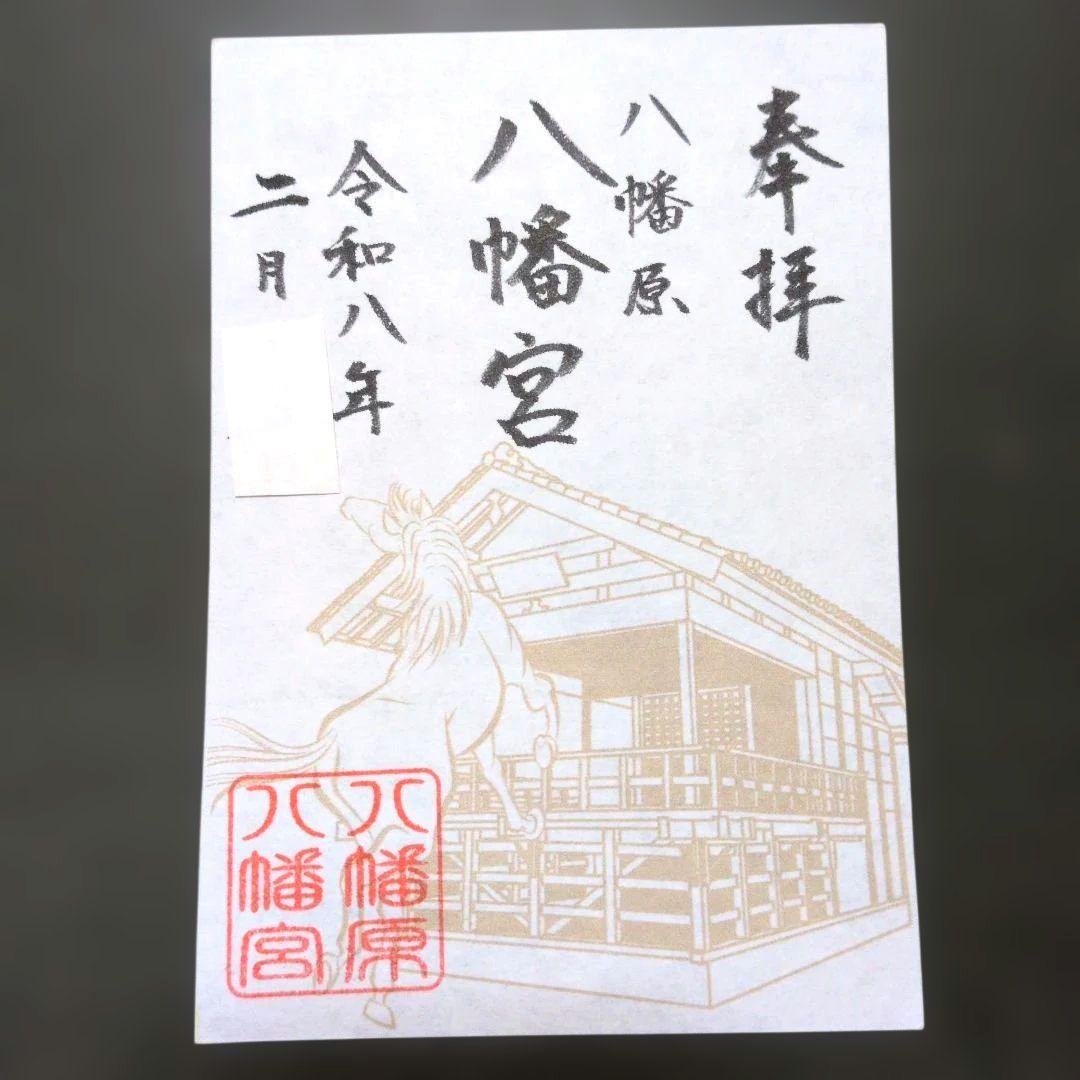 奉拝
八幡原
八幡宮
令和八年
二月
八幡原
八幡宮